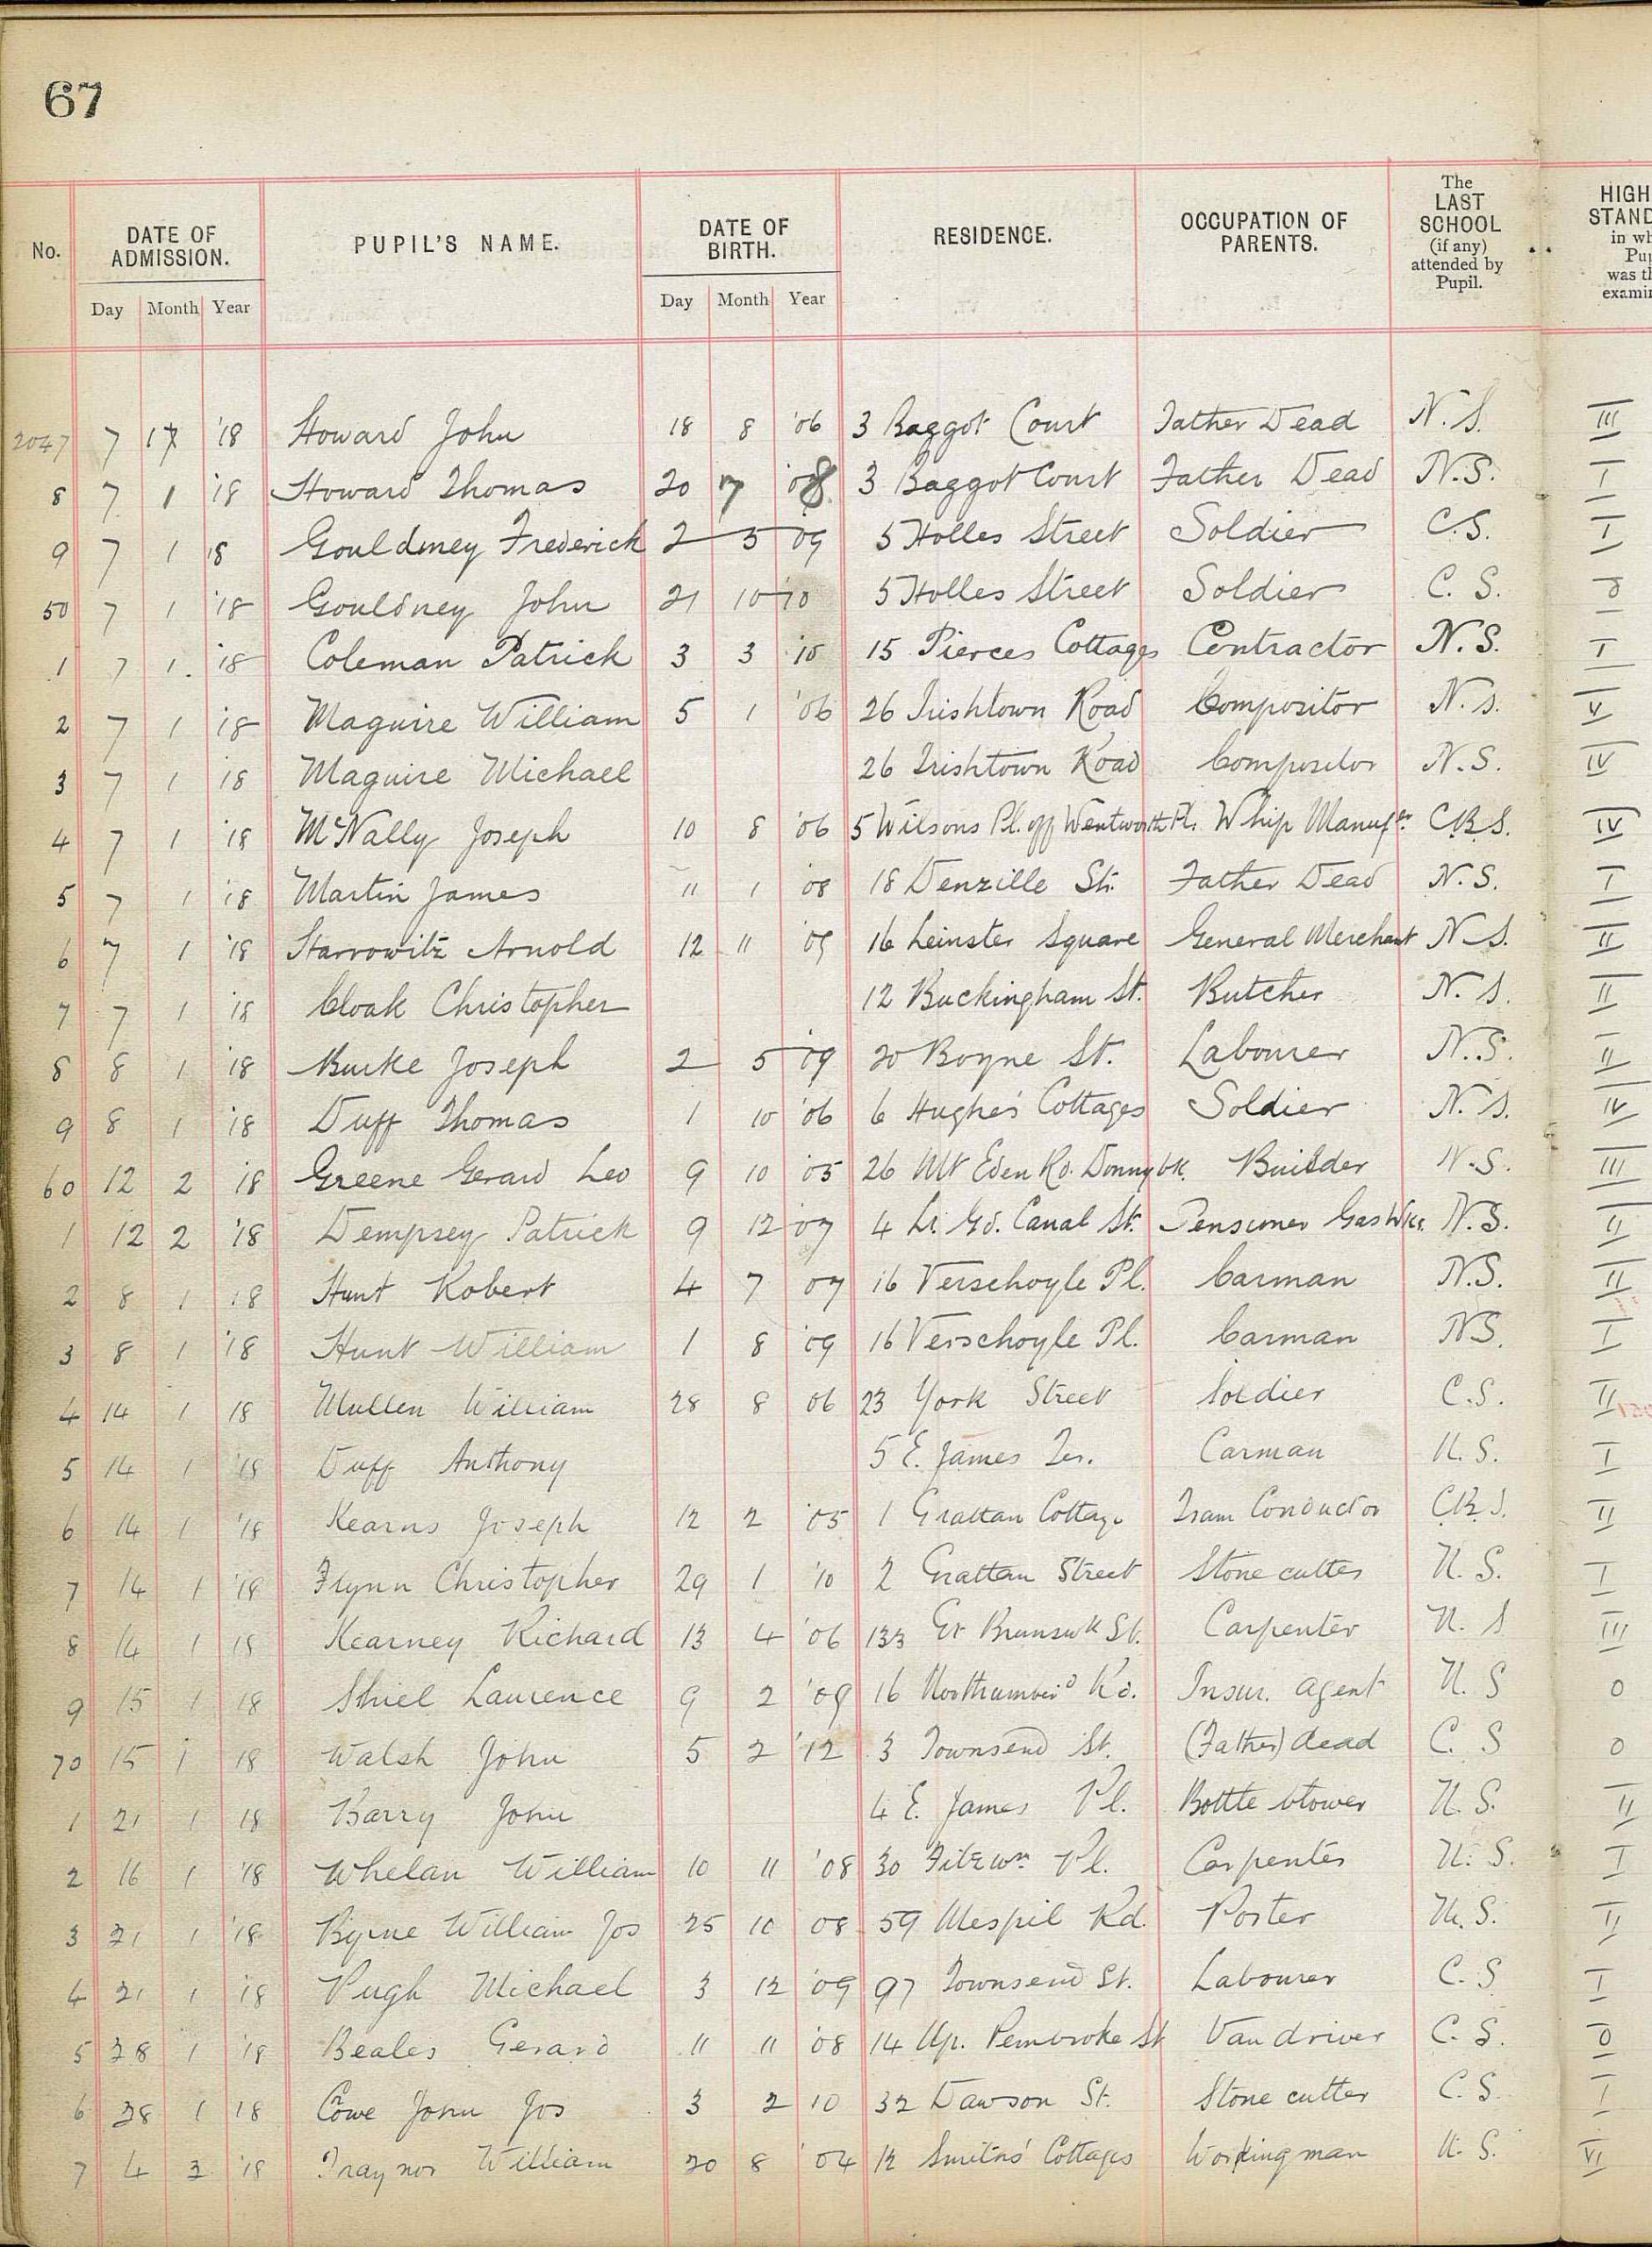 67
No. DATE OF ADMISSION. PUPIL'S NAME. DATE OF BIRTH. RESIDENCE. OCCUPATION OF PARENTS. The LAST SCHOOL (if any) attended by Pupil. HIGH STAND in wh Pup was th examin
Day Month Year Day Month Year
2047 7 1 '18 Howard John 18 8 '06 3 Baggot Court Father Dead N.S. III
8 7 1 '18 Howard Thomas 20 7 '08 3 Baggot Court Father Dead N.S. I
9 7 1 '18 Gouldney Frederick 2 5 '09 5 Holles Street Soldier C.S. I
50 7 1 '18 Gouldney John 21 10 '10 5 Holles Street Soldier C.S.
1 7 1 '18 Coleman Patrick 3 3 '10 15 Pierces Cottages Contractor N.S. I
2 7 1 '18 Maguire William 5 1 '06 26 Irishtown Road Compositor N.S. V
3 7 1 '18 Maguire Michael 26 Irishtown Road Compositor N.S. IV
4 7 1 '18 McNally Joseph 10 8 '06 5 Wilsons Pl. off Wentworth Pl. Whip Manufr C.B.S. IV
5 7 1 '18 Martin James 11 1 '08 18 Denzille St. Father Dead N.S. I
6 7 1 '18 Starrowitz Arnold 12 11 '09 16 Leinster Square General Merchant N.S. II
7 7 1 '18 Cloak Christopher 12 Buckingham St. Butcher N.S. II
8 8 1 '18 Burke Joseph 2 5 '09 20 Boyne St. Labourer N.S. II
9 8 1 '18 Duff Thomas 1 10 '06 6 Hughes' Cottages Soldier N.S. IV
60 12 2 '18 Greene Gerard Leo 9 10 '05 26 Mt Eden Rd. Donnybk. Builder N.S. III
1 12 2 '18 Dempsey Patrick 9 12 '07 4 Lr. Gd. Canal St. Pensioner Gas Wks. N.S. II
2 8 1 '18 Hunt Robert 4 7 07 16 Verschoyle Pl. Carman N.S. II
3 8 1 '18 Hunt William 1 8 '09 16 Verschoyle Pl. Carman NS. I
4 14 1 18 Mullen William 28 8 06 23 York Street Soldier C.S. II
5 14 1 '18 Duff Anthony 5 E. James Ter. Carman N.S. I
6 14 1 '18 Kearns Joseph 12 2 '05 1 Grattan Cottage Tram Conductor C.B.S. II
7 14 1 '18 Flynn Christopher 29 1 '10 2 Grattan Street Stone cutter N.S. I
8 14 1 18 Kearney Richard 13 4 '06 133 Gt Brunswk St. Carpenter N.S III
9 15 1 18 Shiel Laurence 9 2 '09 16 Northumber'd Rd. Insur. agent N.S 0
70 15 1 18 Walsh John 5 2 '12 3 Townsend St. (Father) dead C.S 0
1 21 1 18 Barry John 4 E. James Pl. Bottle blower N.S. II
2 16 1 '18 Whelan William 10 11 '08 30 Fitzwm Pl. Carpenter N.S. I
3 21 1 '18 Byrne William Jos 25 10 08 59 Mespil Rd. Porter N.S. II
4 21 1 '18 Pugh Michael 3 12 '09 97 Townsend St. Labourer C.S I
5 28 1 '18 Beales Gerard 11 11 '08 14 Up. Pembroke St Van driver C.S. 0
6 28 1 18 Cowe John Jos 3 2 10 32 Dawson St. Stone cutter C.S. I
7 4 3 '18 Traynor William 20 8 '04 12 Smiths' Cottages Workingman N.S. VI